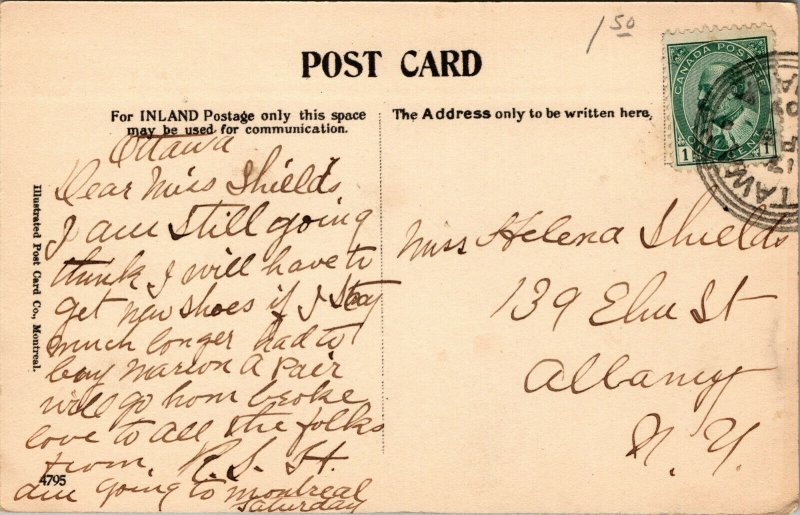 1 50
POST CARD
For INLAND Postage only this space
may be used for communication.
The Address only to be written here,
CANADA POSTAGE
ONE CENT
1
Ottawa
Dear Miss Shields
I am still going
think I will have to
get new shoes if I stay
much longer had to
buy Marion a pair
will go hom broke
love to all the folks
from, R. S. H.
am going to montreal
Saturday
Miss Helena Shields
139 Elm St
Albany
N. Y.
Illustrated Post Card Co., Montreal.
4795